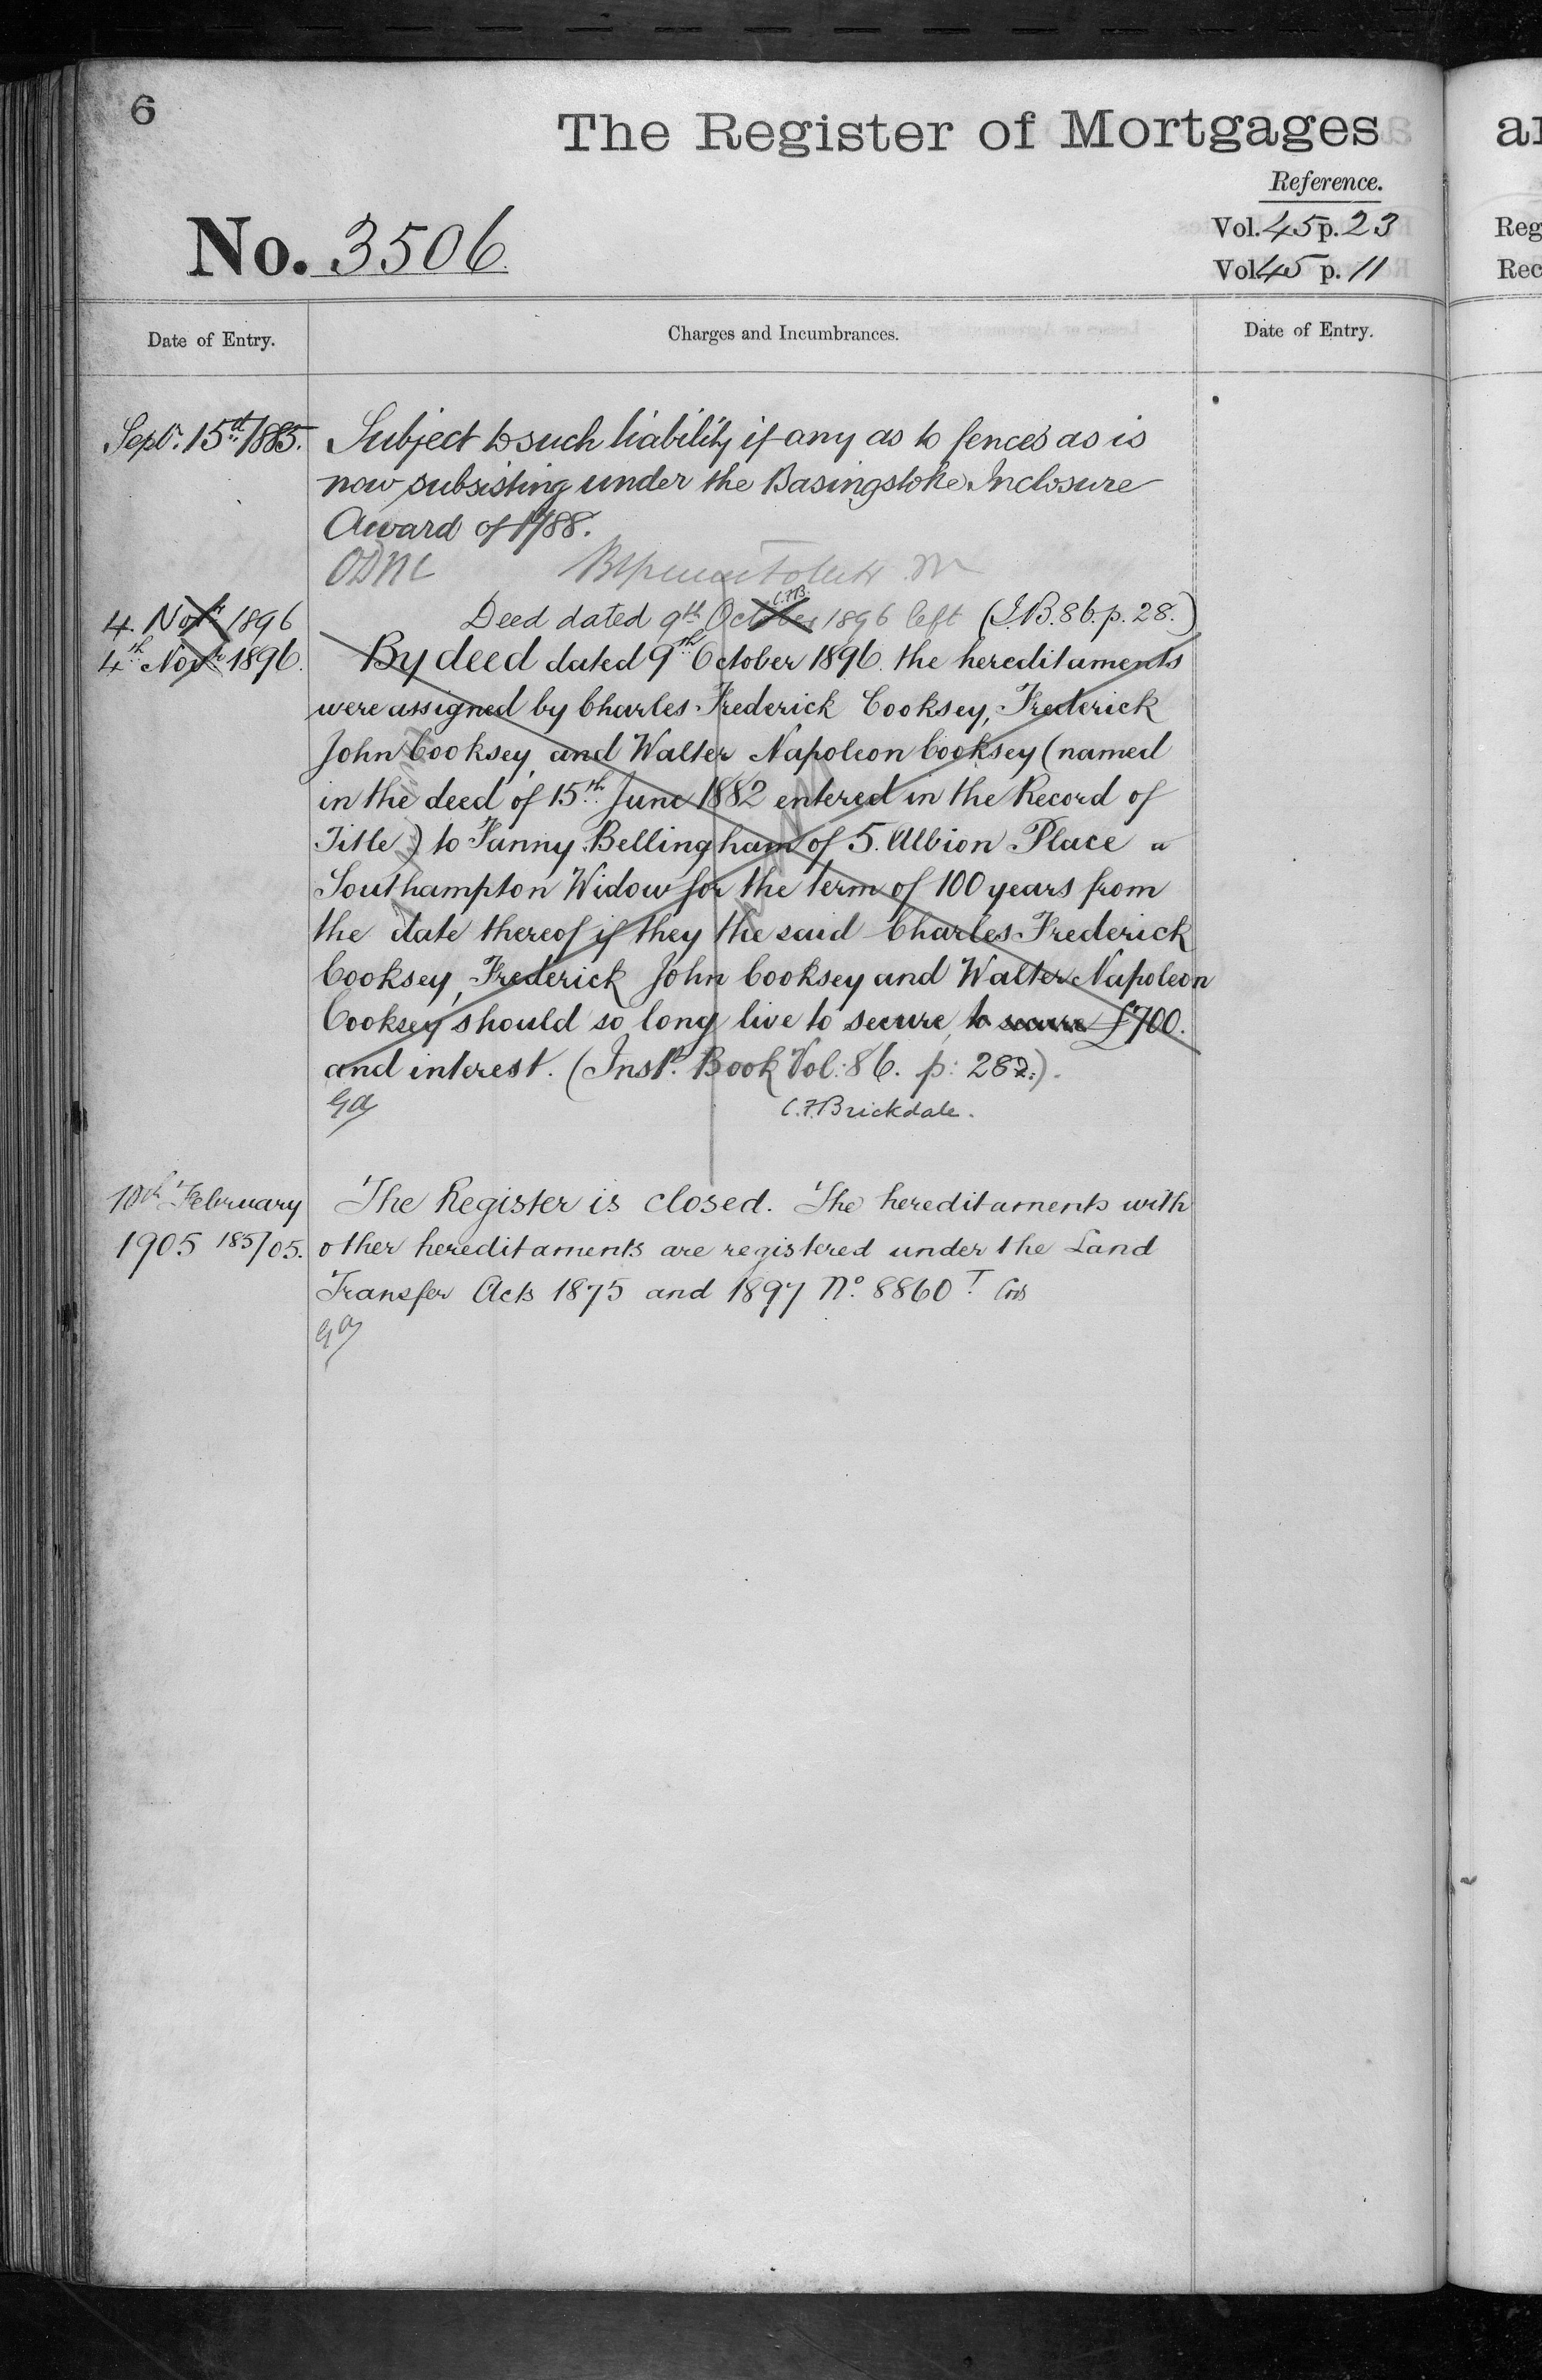 6
The Register of Mortgages
Reference.
Vol. 45 p. 23
Vol. 45 p. 11
No. 3506
Date of Entry.
Charges and Incumbrances.
Date of Entry.
Septr. 15th 1885.
Subject to such liability if any as to fences as is
now subsisting under the Basingstoke Inclosure
Award of 1788.
4. Novr 1896
C.F.B.
Deed dated 9th October 1896 left (I.B. 86. p. 28.)
4th Novr 1896.
By deed dated 9th October 1896 the hereditaments
were assigned by Charles Frederick Cooksey, Frederick
John Cooksey, and Walter Napoleon Cooksey (named
in the deed of 15th June 1882 entered in the Record of
Title) to Fanny Bellingham of 5. Albion Place
Southampton Widow for the term of 100 years from
the date thereof if they the said Charles Frederick
Cooksey, Frederick John Cooksey and Walter Napoleon
Cooksey should so long live to secure, to secure £700.
and interest. (Inst. Book Vol: 86. p: 28.).
C.F. Brickdale.
10th February
1905 185/05.
The Register is closed. The hereditaments with
other hereditaments are registered under the Land
Transfer Acts 1875 and 1897 No. 8860 T
ar
Reg
Rec